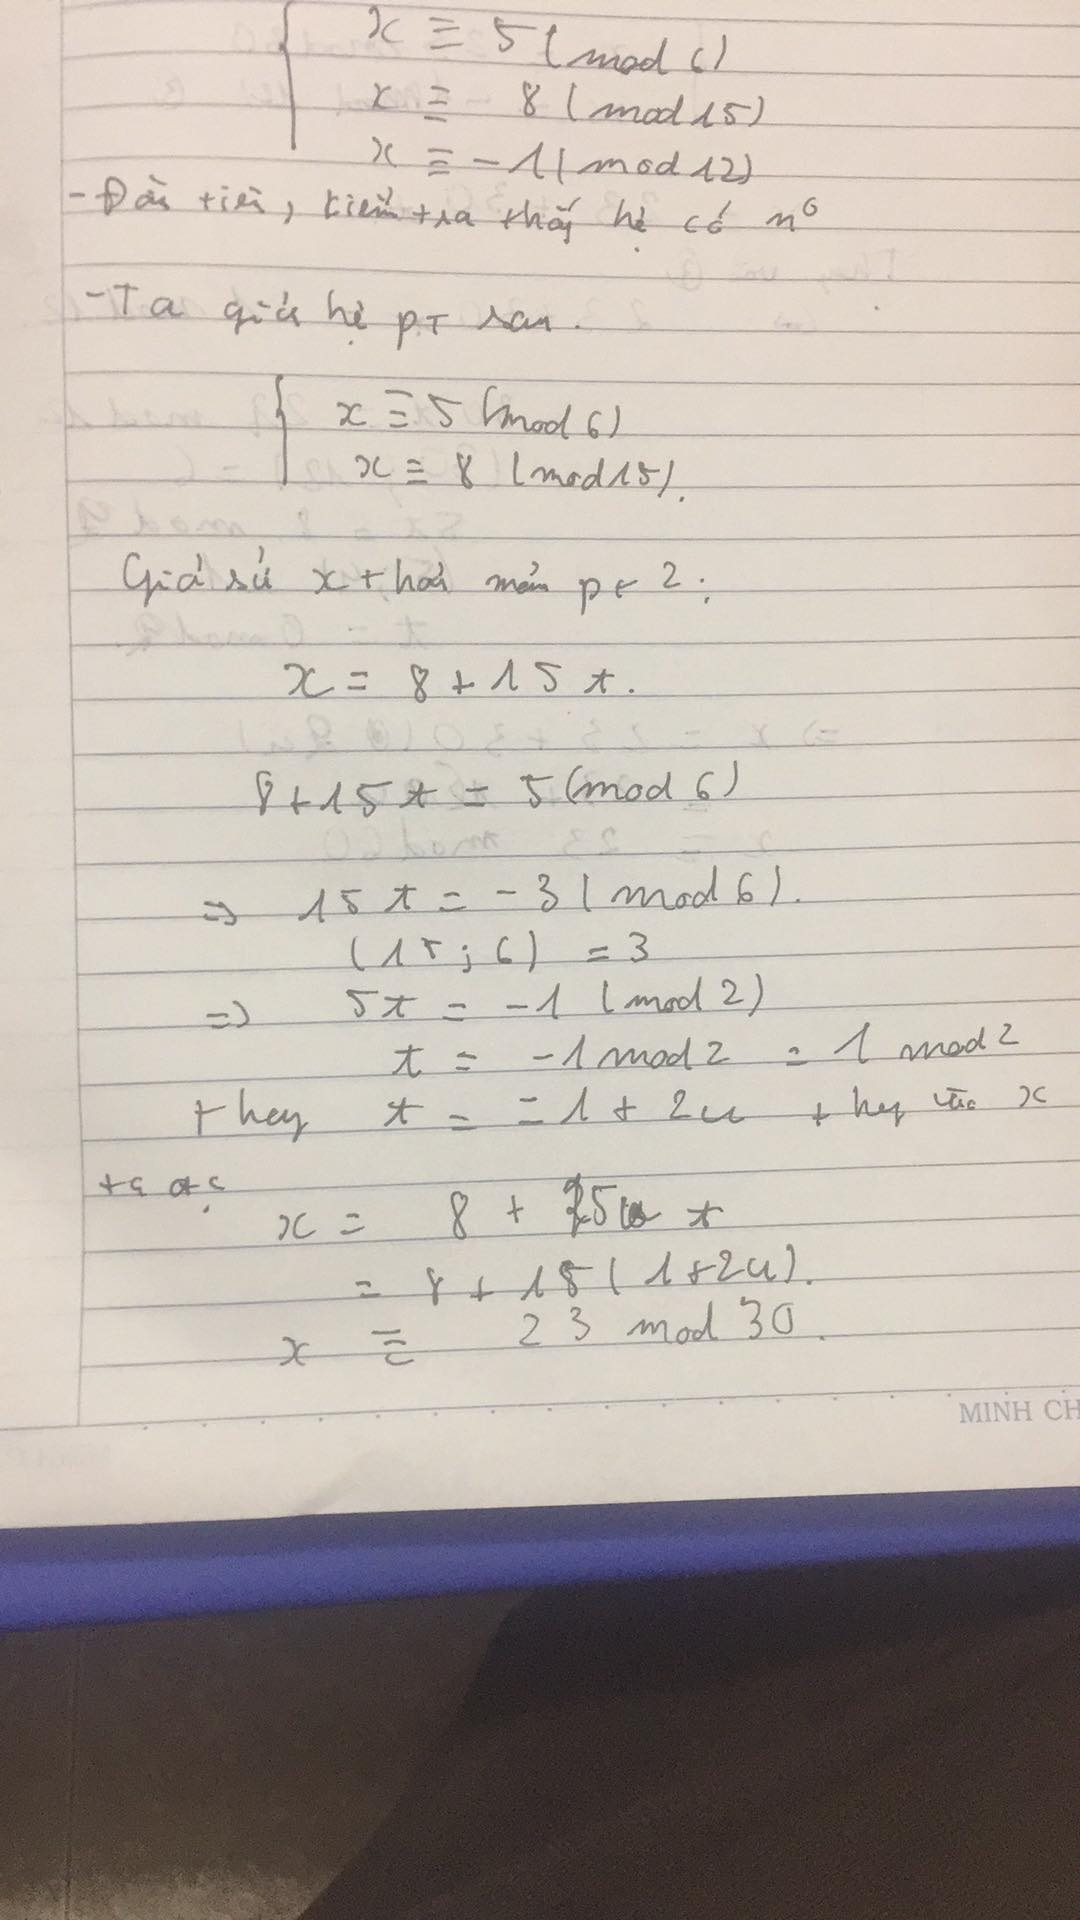 x ≡ 5 (mod 6)
x ≡ 8 (mod 15)
x ≡ -1 (mod 12)
- Đầu tiên, kiểm tra thấy hệ có n⁰
- Ta giải hệ pT sau.
x ≡ 5 (mod 6)
x ≡ 8 (mod 15).
Giả sử x thoả mãn pt 2:
x = 8 + 15 t.
8 + 15 t = 5 (mod 6)
=> 15 t = -3 (mod 6).
(15; 6) = 3
=> 5t = -1 (mod 2)
t = -1 mod 2 = 1 mod 2
thay t = = 1 + 2u thay vào x
ta đc
x = 8 + 15 t
= 8 + 15 (1 + 2u).
x ≡ 23 mod 30.
MINH CH